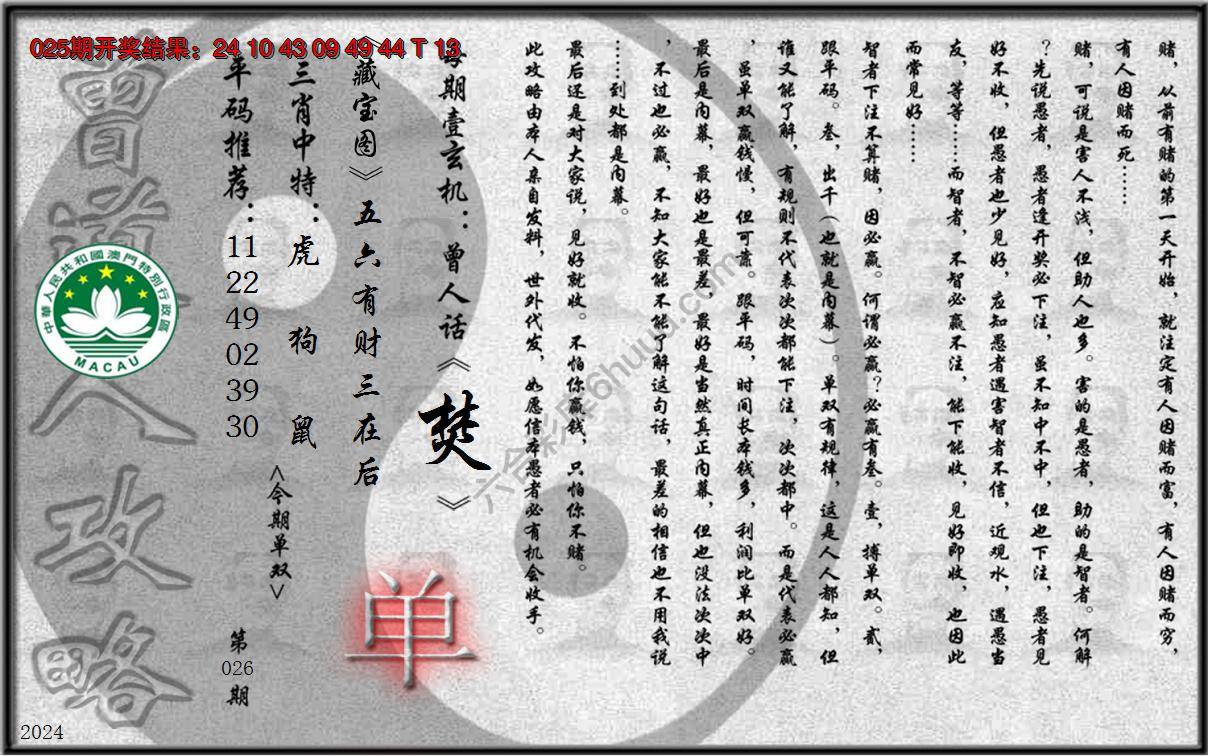 025期开奖结果：24 10 43 09 49 44 T 13
赌，从前有赌的第一天开始，就注定有人因赌而富，有人因赌而穷，
有人因赌而死……
赌，可说是害人不浅，但助人也多。害的是愚者，助的是智者。何解
？先说愚者，愚者逢开奖必下注，虽不知中不中，但也下注，愚者见
好不收，但愚者也少见好，应知愚者遇害智者不信，近观水，遇愚当
友，等等……而智者，不智必赢不注，能下能收，见好即收，也因此
而常见好……
智者下注不算赌，因必赢。何谓必赢？必赢有叁。壹，搏单双。贰，
跟平码。叁，出千（也就是内幕）。单双有规律，这是人人都知，但
谁又能了解，有规则不代表次次都能下注，次次都中。而是代表必赢
，虽单双赢钱慢，但可靠。跟平码，时间长本钱多，利润比单双好。
最后是内幕，最好也是最差，最好是当然真正内幕，但也没法次次中
，不过也必赢，不知大家能不能了解这句话，最差的相信也不用我说
……到处都是内幕。
最后还是对大家说，见好就收。不怕你赢钱，只怕你不赌。
此攻略由本人亲自发料，世外代发，如愿信本愚者必有机会收手。
每期壹玄机：曾人话《焚》
《藏宝图》五六有财三在后
三肖中特：虎 狗 鼠
平码推荐：11 22 49 02 39 30
<今期单双>
单
第026期
曾道人攻略
中華人民共和國澳門特別行政區
MACAU
六合彩库6huuu.com
2024